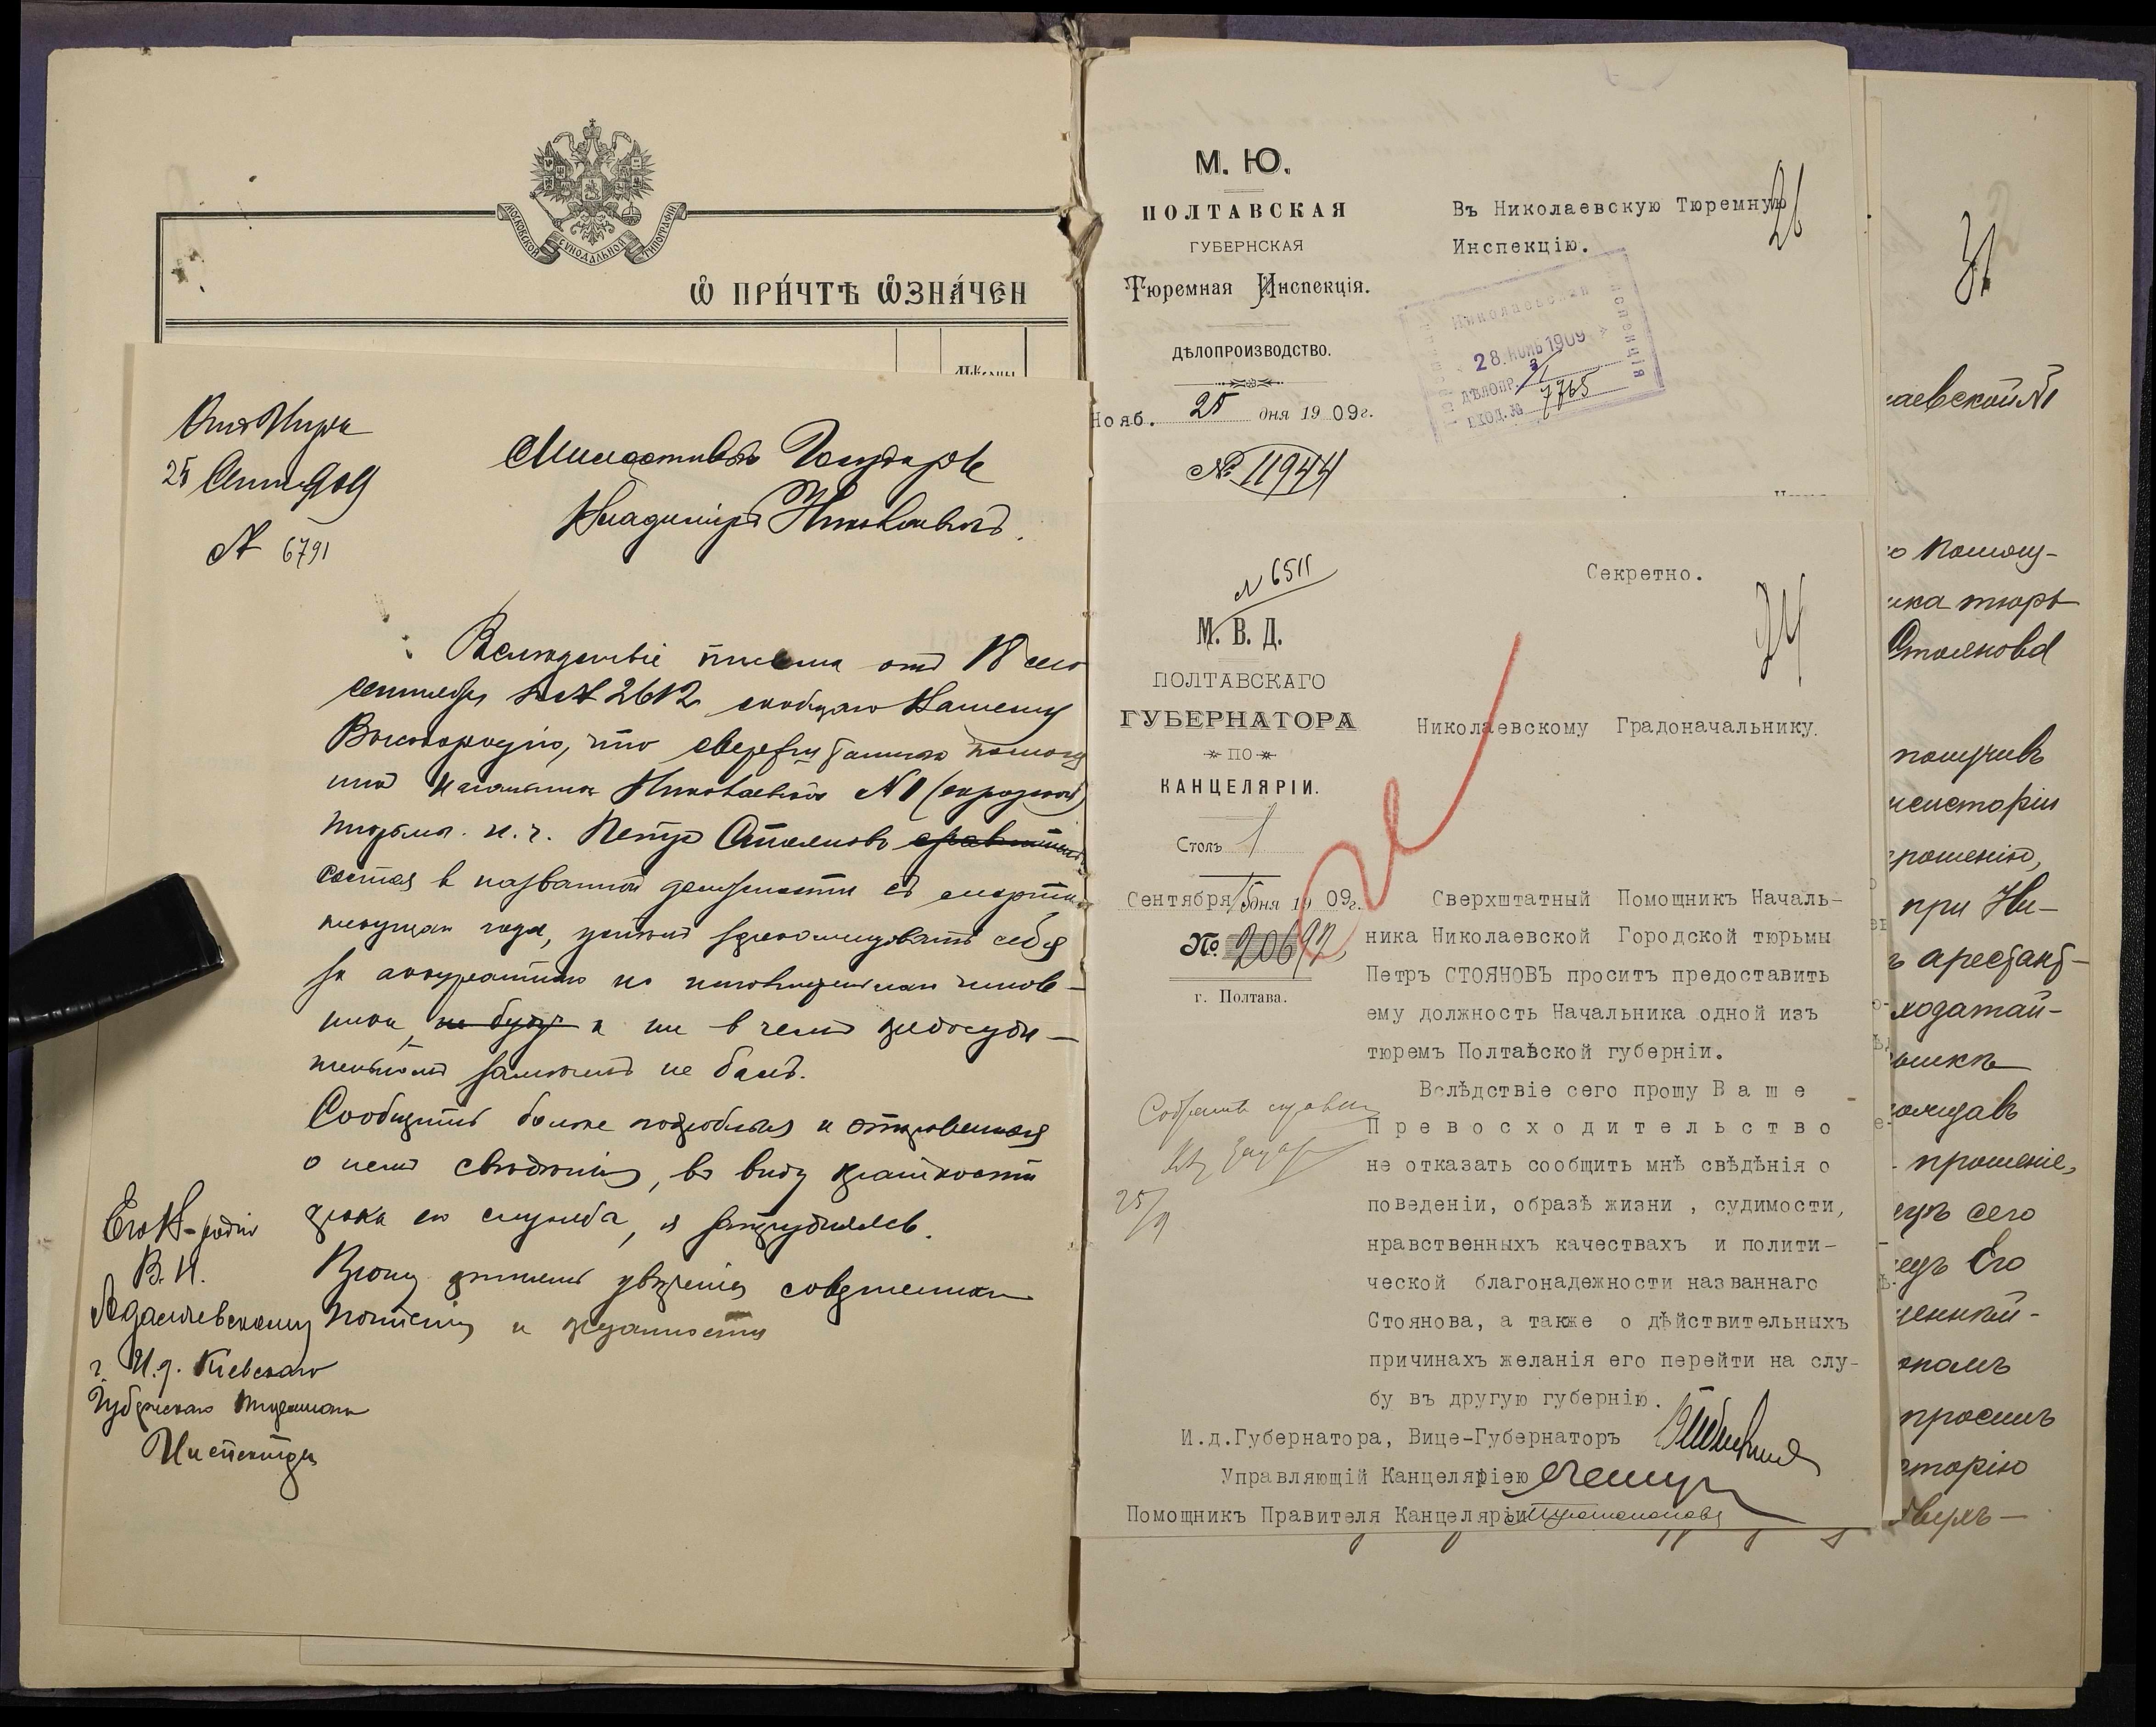 МОСКОВСКОЙ СѴНОДАЛЬНОЙ ТИПОГРАФІИ
Ѽ ПРИ́ЧТѢ Ѽ҆ЗНА́ЧЕН
25 Сент. 909
№ 6791
Милостивый Государь
Владиміръ Николаевичъ.
Вслѣдствіе письма отъ 18 сего
сентября за № 2612 сообщаю Вашему
Высокородію, что сверхштатный помощ
никъ Начальника Николаевской № 1 (городской)
тюрьмы н. ч. Петръ Стояновъ
состоя в названной должности съ марта
текущаго года, успѣлъ зарекомендовать себя
за аккуратнаго и исполнительнаго чинов-
ника, не буду и ни в чемъ предосуди-
тельномъ замѣченъ не былъ.
Сообщить болѣе подробныя и откровенныя
о немъ свѣдѣнія, въ виду краткости
срока его службы, я затрудняюсь.
Прошу принять увѣреніе совершеннаго
почтенія и преданности
Его В-родію
В. Н.
г. И. д. Кіевскаго
Губернскаго Тюремнаго
Инспектора
М. Ю.
ПОЛТАВСКАЯ
ГУБЕРНСКАЯ
Тюремная Инспекція.
ДѢЛОПРОИЗВОДСТВО.
Нояб. 25 дня 1909г.
№ 11944
Въ Николаевскую Тюремную
Инспекцію.
26
Николаевская
Инспекція
28. НОЯБ 1909
ДѢЛОПР. 3
ВХОД. № 7765
№ 6511
М. В. Д.
ПОЛТАВСКАГО
ГУБЕРНАТОРА
ПО
КАНЦЕЛЯРІИ.
Столъ 1
Сентября 15 дня 1909г.
№ 20692
г. Полтава.
25/9
Секретно.
24
Николаевскому Градоначальнику.
Сверхштатный Помощникъ Началь-
ника Николаевской Городской тюрьмы
Петръ СТОЯНОВЪ проситъ предоставить
ему должность Начальника одной изъ
тюремъ Полтавской губерніи.
Вслѣдствіе сего прошу Ваше
Превосходительство
не отказать сообщить мнѣ свѣдѣнія о
поведеніи, образѣ жизни , судимости,
нравственныхъ качествахъ и полити-
ческой благонадежности названнаго
Стоянова, а также о дѣйствительныхъ
причинахъ желанія его перейти на слу-
бу въ другую губернію.
И.д.Губернатора, Вице-Губернаторъ
Управляющій Канцеляріею
Помощникъ Правителя Канцеляріи
31
аевской № 1
о Помощ-
ика тюрь
Стоянова
получивъ
рошенію,
при Ни-
арестант-
ходатай-
прошеніе,
сего
Его
просилъ
сторію
Сверх-